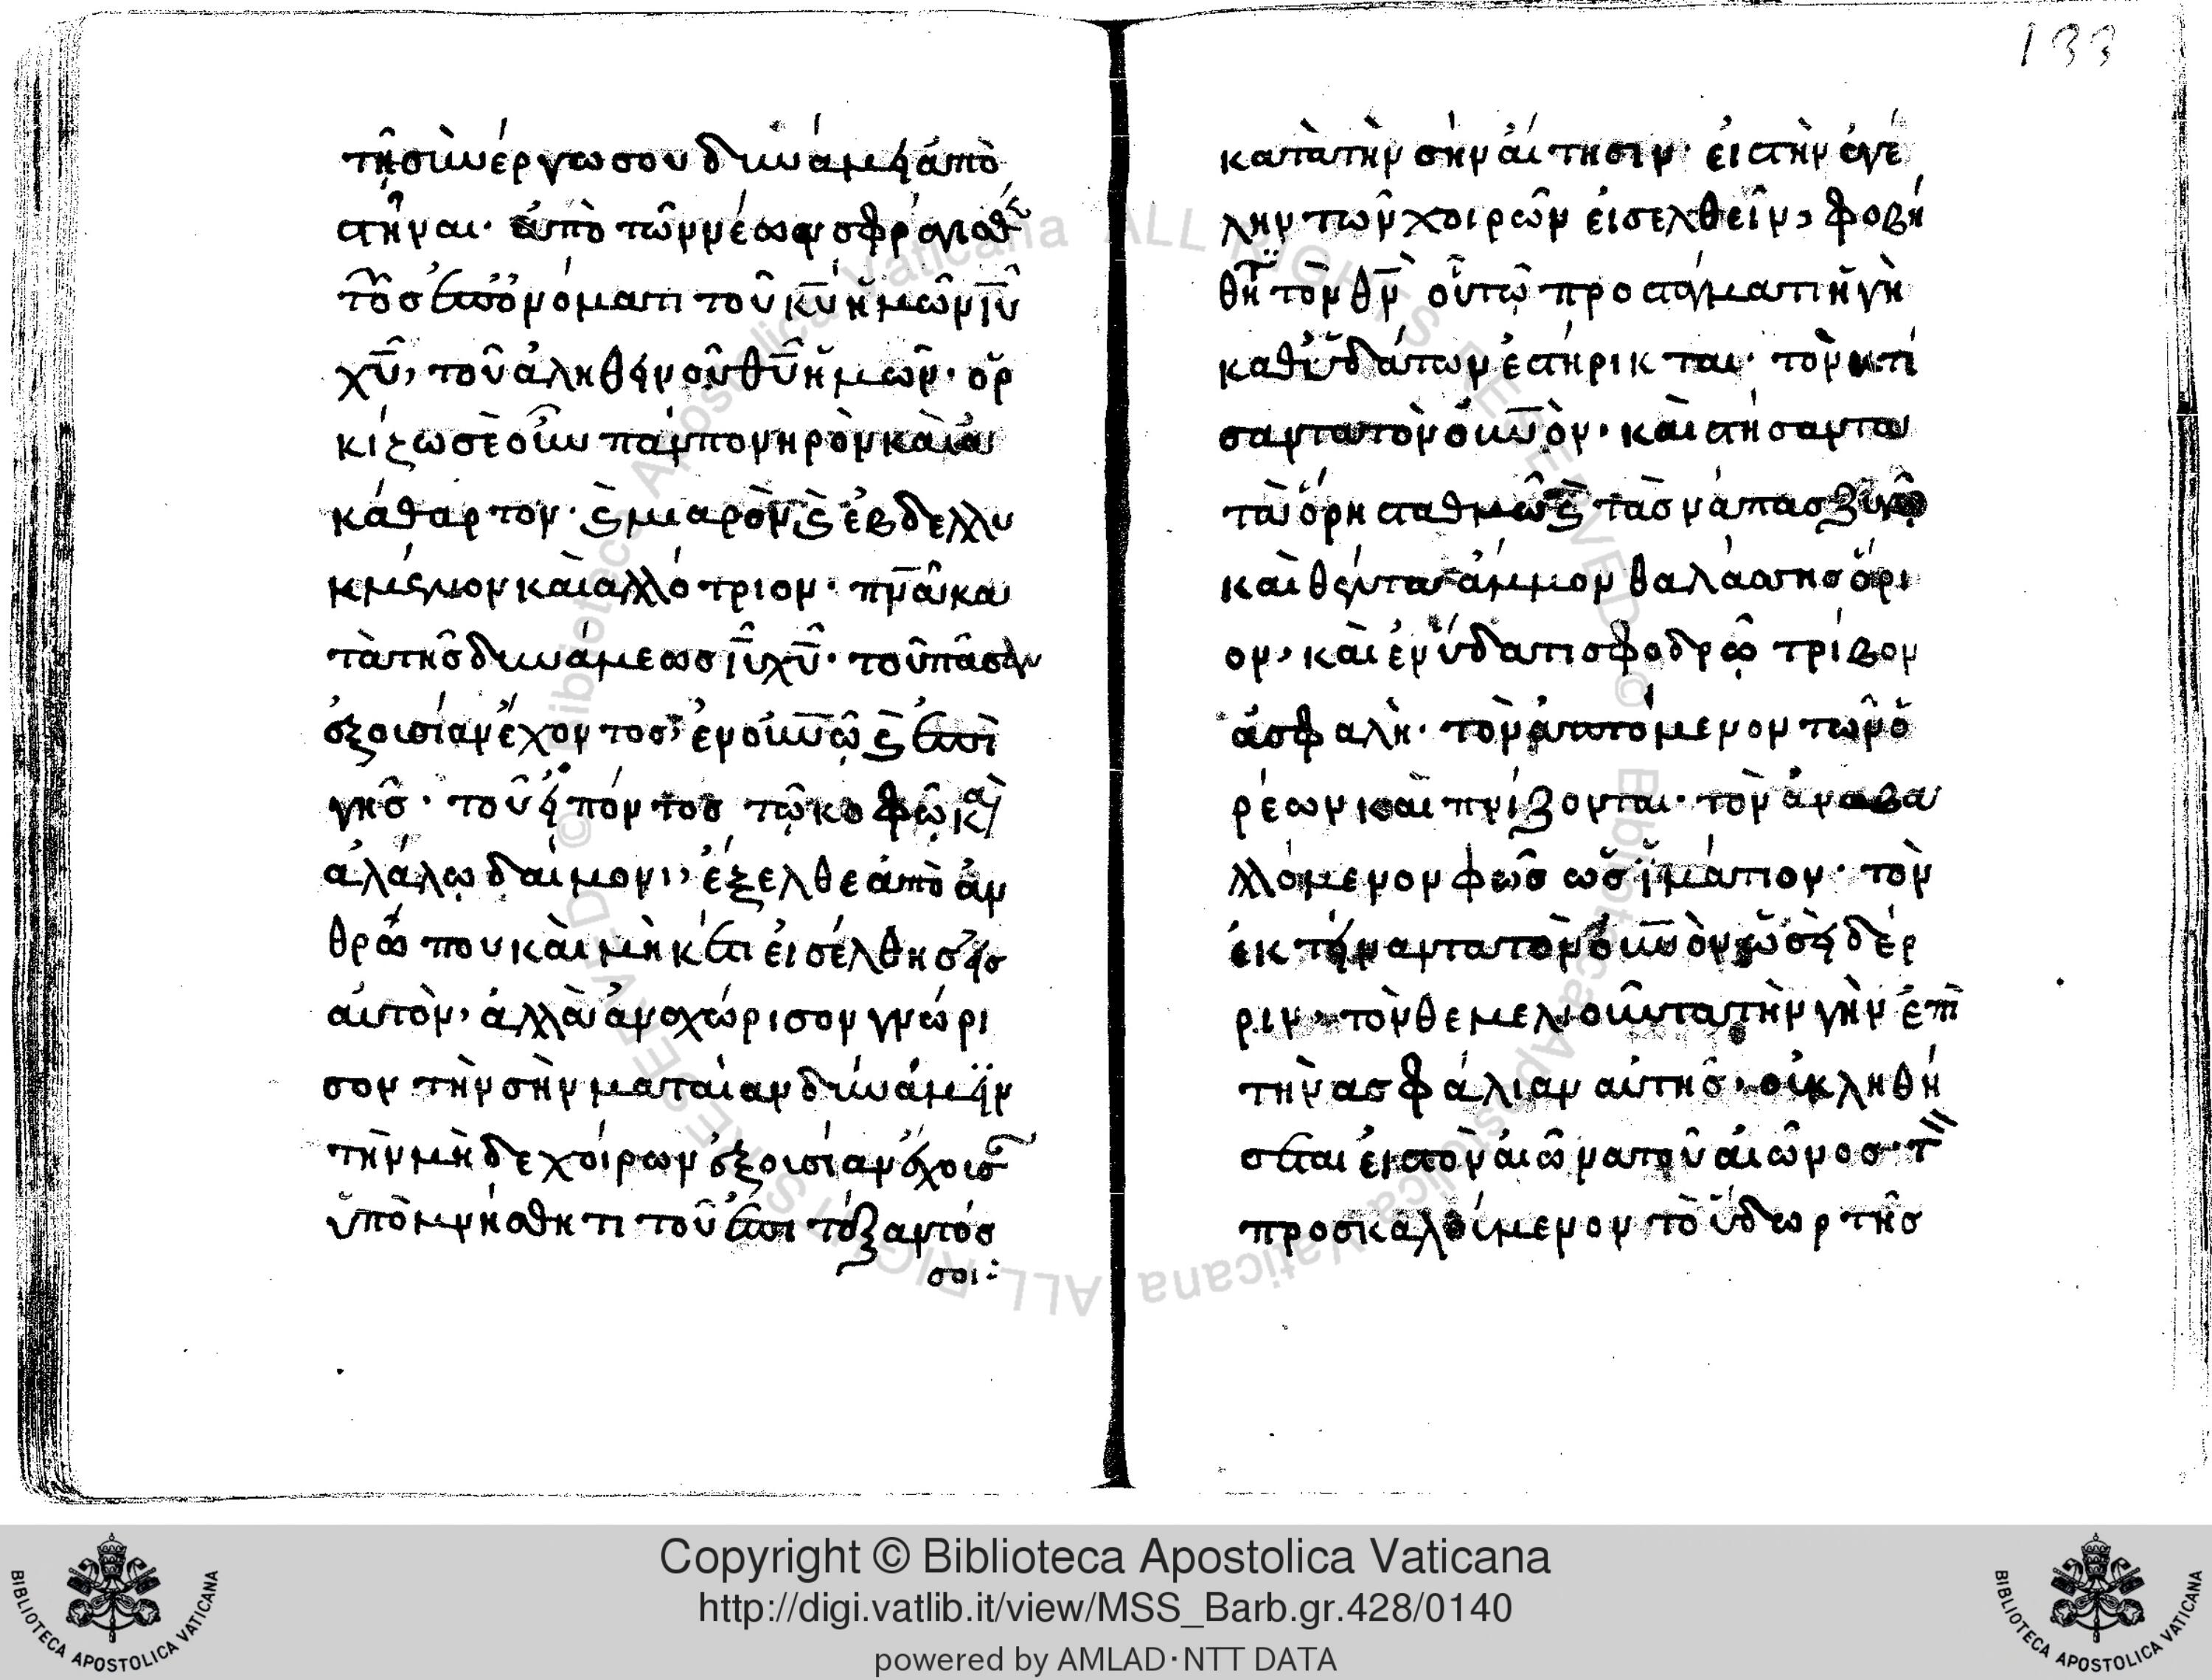 133
τῆ συνέργω σου δυνάμει ἀπὸ
στῆναι· ἀπὸ τῶν νέων σφραγισθέν
τῶν ἐπ' ὀνόματι τοῦ κ̅υ̅ ἡμῶν ι̅υ̅
χ̅υ̅, τοῦ ἀληθινοῦ θ̅υ̅ ἡμῶν· ὁρ
κίζω σὲ οὖν παμπονηρὸν καὶ ἀ
κάθαρτον· ϗ μιαρὸν ϗ ἐβδελλυ
γμένον καὶ ἀλλότριον· π̅ν̅α̅ κα
τὰ τῆς δυνάμεως ι̅υ̅ χ̅υ̅· τοῦ πᾶσαν
ἐξουσίαν ἔχοντος, ἐν ο̅υ̅ν̅ω̅ ϗ ἐπὶ
γῆς· τοῦ εἰπόντος τῷ κοφῷ καὶ
ἀλάλῳ δαίμονι, ἔξελθε ἀπὸ ἀν
θρώπου καὶ μὴκέτι εἰσέλθης εἰς
αὐτὸν, ἀλλὰ ἀνοχώρισον γνώρι
σον τὴν σὴν ματαίαν δύναμϊν
τὴν μὴδε χοίρων ἐξουσίαν ἔχουσαν
ὑπὸμνήσθητι τοῦ ἐπιτάξαντός
σοι:
κατὰ τὴν σὴν αἴτησιν· εἰς τὴν ἀγέ
λην τῶν χοιρῶν εἰσελθεῖν, φοβή
θητι τὸν θ̅ν̅ οὗ τῷ προστάγματι ἡ γῆ
καθ' ὑδάτων ἐστήρικται· τὸν κτί
σαντα τὸν ο̅υ̅ν̅ὸν· καὶ στήσαντα
τὰ ὄρη σταθμῷ ϗ τὰς νάπας ζυγῷ
καὶ θέντα ἄμμον θαλάσσης ὅρι
ον, καὶ ἐν ὕδατι σφοδρῷ τρίβον
ἀσφαλῆ· τὸν ἁπτόμενον τῶν ὀ
ρέων καὶ πνίζονται· τὸν ἀναβα
λλόμενον φῶς ὡς ἱμάτιον· τὸν
ἐκτείναντα τὸν ο̅υ̅ν̅ὸν ὡσεὶ δέρ
ριν, τὸν θεμελιοῦντα τὴν γῆν ἐπὶ
τὴν ἀσφάλιαν αὐτῆς, οὐ κληθή
σεται εἰς τὸν αἰῶνα τοῦ αἰῶνος· τὸν
προσκαλούμενον τὸ ὕδωρ τῆς
Copyright © Biblioteca Apostolica Vaticana
http://digi.vatlib.it/view/MSS_Barb.gr.428/0140
powered by AMLAD·NTT DATA
BIBLIOTECA APOSTOLICA VATICANA
BIBLIOTECA APOSTOLICA VATICANA